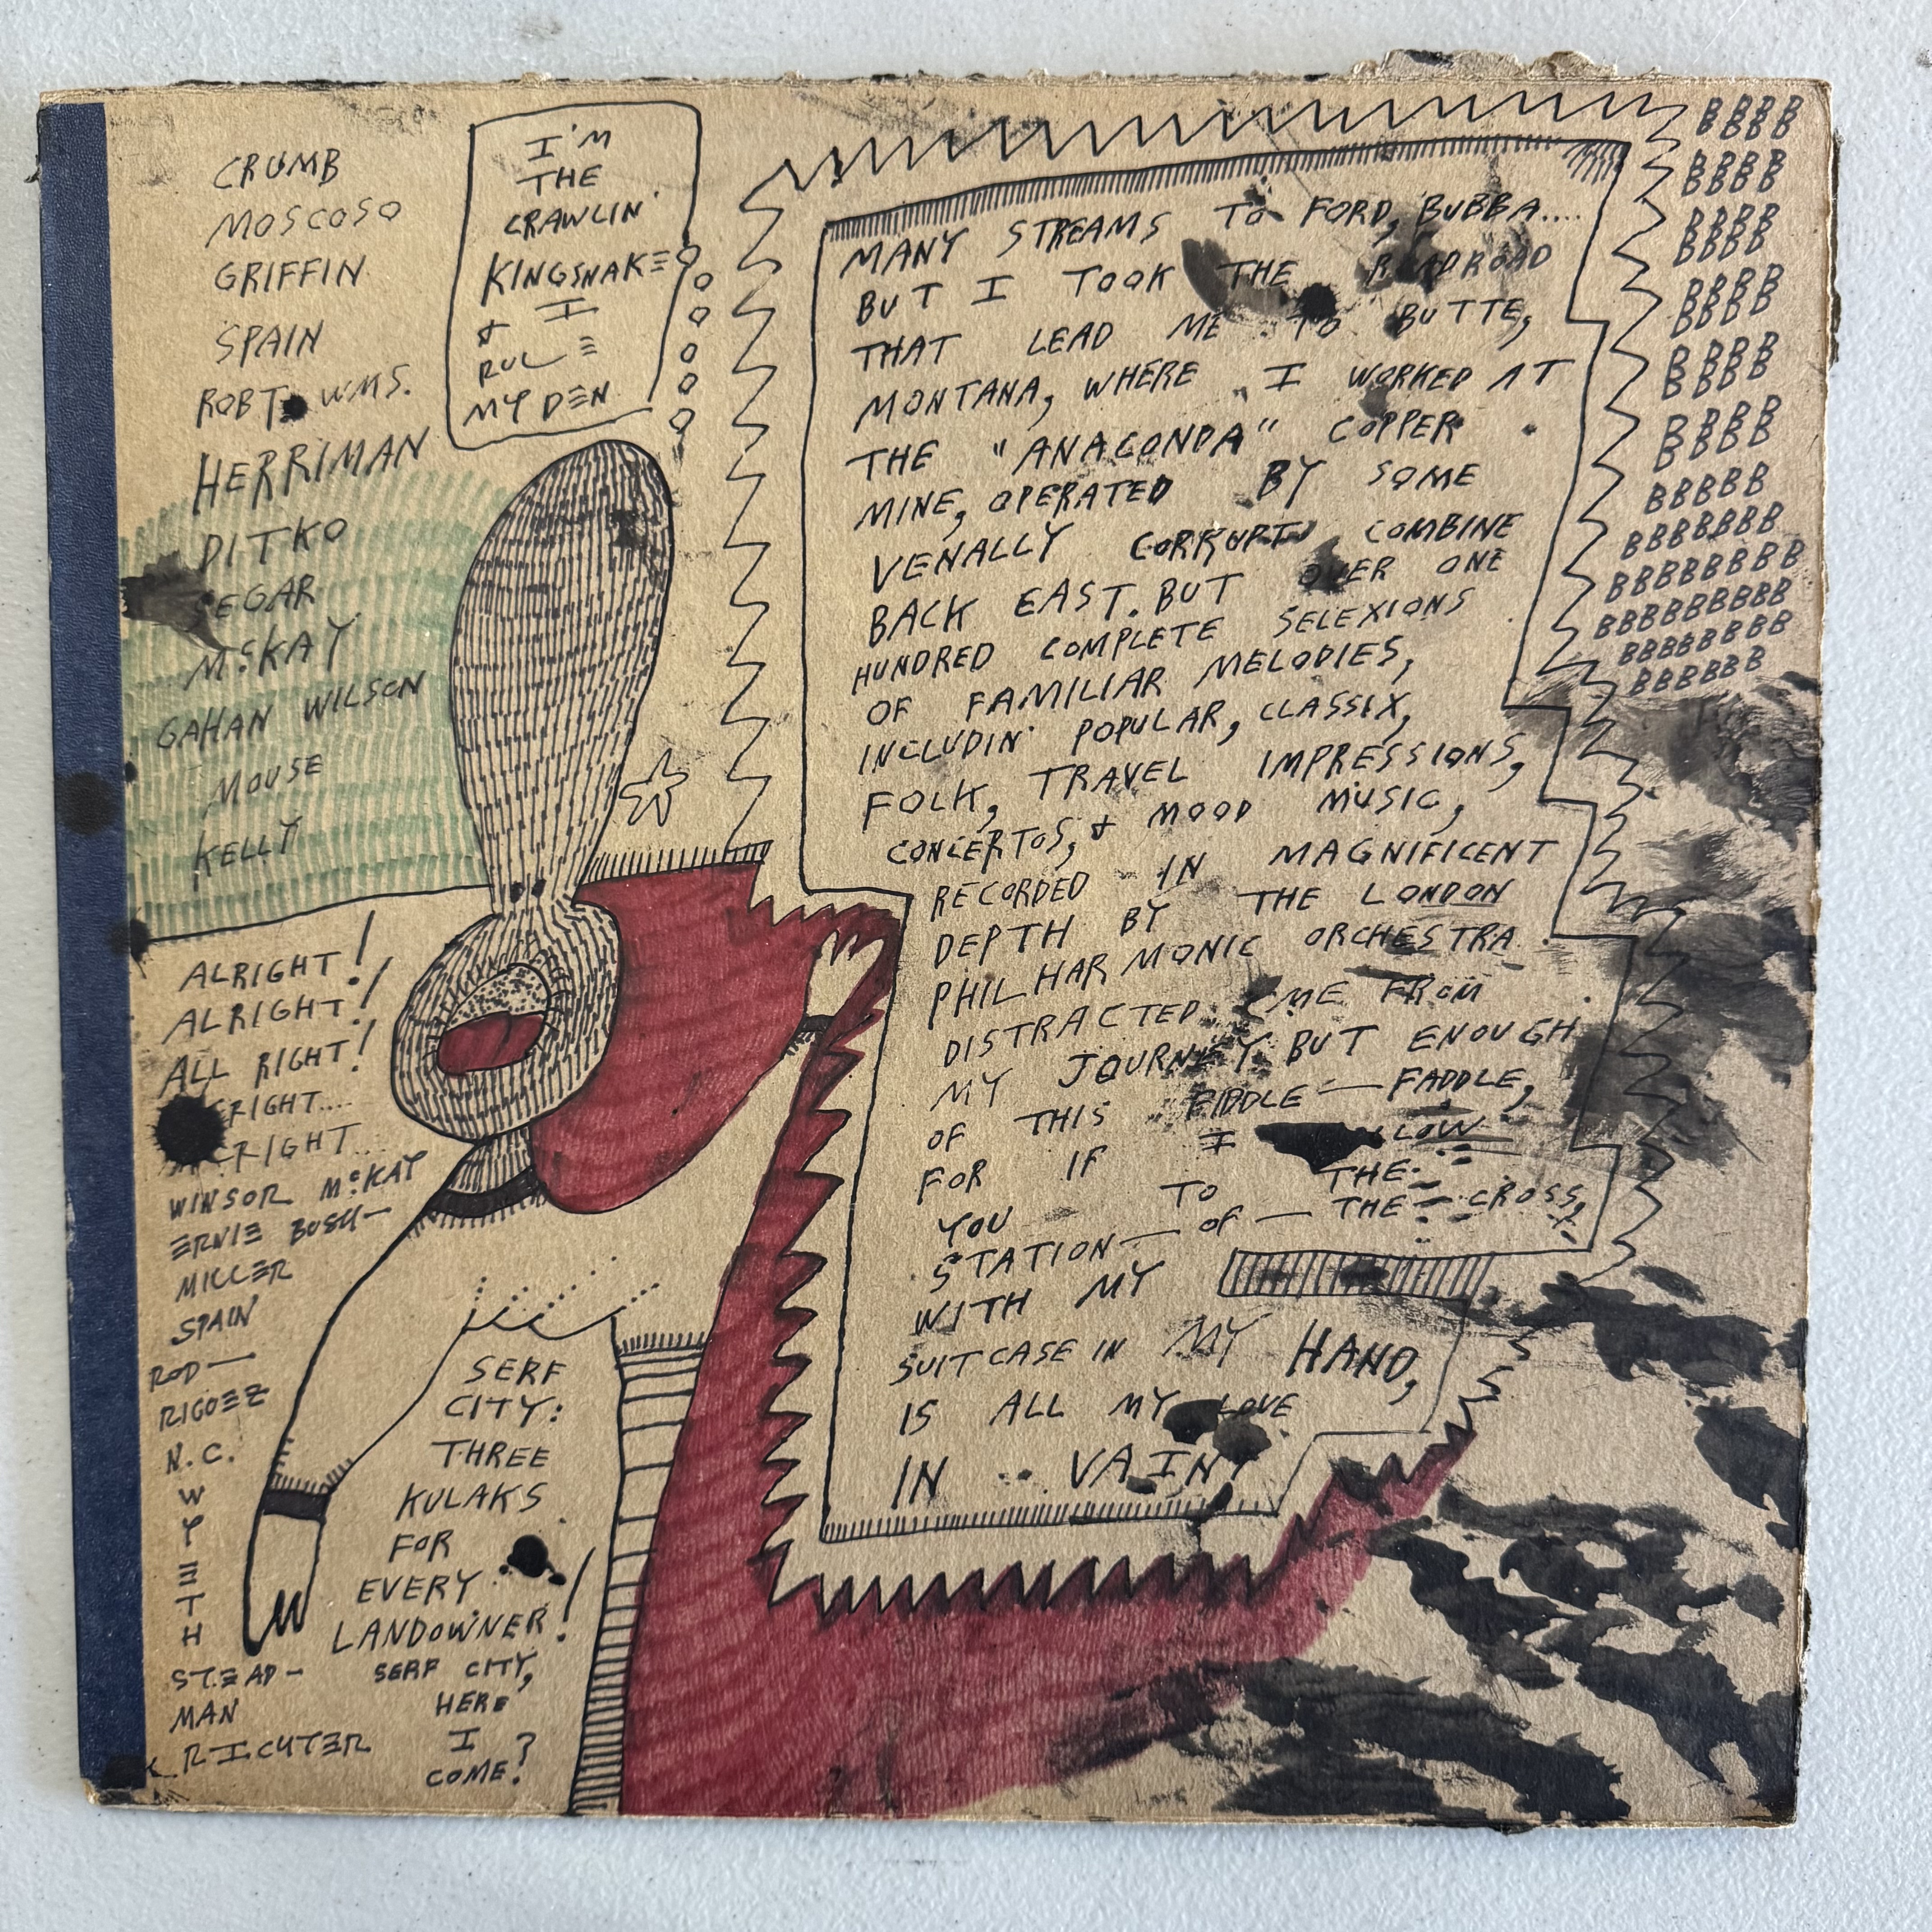 CRUMB
MOSCOSO
GRIFFIN
SPAIN
ROBT. WMS.
HERRIMAN
DITKO
SEGAR
McKAY
GAHAN WILSON
MOUSE
KELLY
I'M
THE
CRAWLIN'
KINGSNAKE
& I
RULE
MY DEN
ALRIGHT!
ALRIGHT!
ALL RIGHT!
RIGHT....
RIGHT...
WINSOR McKAY
ERNIE BUSH-
MILLER
SPAIN
ROD—
RIGUEZ
N.C.
W
Y
E
T
H
STEAD-
MAN
RICHTER
SERF
CITY:
THREE
KULAKS
FOR
EVERY
LANDOWNER!
SERF CITY,
HERE
I
COME?
MANY STREAMS TO FORD, BUBBA....
BUT I TOOK THE ROADROAD
THAT LEAD ME TO BUTTE,
MONTANA, WHERE I WORKED AT
THE "ANACONDA" COPPER
MINE, OPERATED BY SOME
VENALLY CORRUPT COMBINE
BACK EAST. BUT OVER ONE
HUNDRED COMPLETE SELEXIONS
OF FAMILIAR MELODIES,
INCLUDIN' POPULAR, CLASSIX,
FOLK, TRAVEL IMPRESSIONS,
CONCERTOS, & MOOD MUSIC,
RECORDED IN MAGNIFICENT
DEPTH BY THE LONDON
PHILHARMONIC ORCHESTRA
DISTRACTED ME FROM
MY JOURNEY. BUT ENOUGH
OF THIS FIDDLE—FADDLE,
FOR IF I LOW
YOU TO THE
STATION—OF—THE—CROSS,
WITH MY
SUITCASE IN MY HAND,
IS ALL MY LOVE
IN VAIN?
BBBB
BBBB
BBBB
BBBB
BBBB
BBBB
BBBB
BBBB
BBBB
BBBB
BBBB
BBBB
BBBBB
BBBBBBB
BBBBBBBB
BBBBBBBBB
BBBBBBBB
BBBBBB